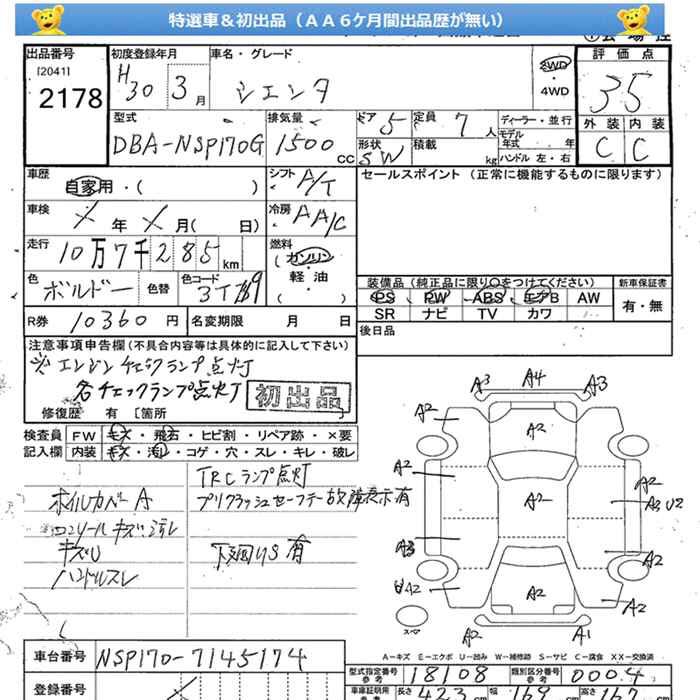 特選車＆初出品（ＡＡ６ケ月間出品歴が無い）
出品番号 初度登録年月 車名・グレード 評価点
[2041] 2178 H30 3月 シエンタ 2WD・4WD 35
型式 排気量 ドア 5 定員 7人 ディーラー・並行 外装 内装
DBA-NSP170G 1500cc 形状 SW 積載 kg モデル年式 年 ハンドル 左・右 C C
車歴 自家用・( ) シフト A/T セールスポイント（正常に機能するものに限ります）
車検 年 月( 日) 冷房 AA/C
走行 10万7千285km 燃料 (ガソリン)
軽・油
( ・ )
色 ボルドー 色替 色コード 3T 装備品（純正品に限り○をつけてください） 新車保証書
PS PW ABS エアB AW 有・無
SR ナビ TV カワ
R券 10360円 名変期限 月 日 後日品
注意事項申告欄(不具合内容等は具体的に記入して下さい)
※エンジンチェックランプ点灯
各チェックランプ点灯 初出品
修復歴 有 [箇所 ]
検査員 FW キズ・飛石・ヒビ割・リペア跡・×要
記入欄 内装 キズ・汚レ・コゲ・穴・スレ・キレ・破レ
TRCランプ点灯
ホイルカバーA プリクラッシュセーフティ故障表示有
コンソールキズ
キズU 下廻りS有
ハンドルスレ
A3 A4 A3
A2 A2
A2 A2
A2 A2 U2
A3 A2
A2 A2
A2 A2
スペア A2 A1
A－キズ E－エクボ U－凹み W－補修跡 S－サビ C－腐食 XX－交換済
車台番号 NSP170-7145174 型式指定番号 参考 18108 類別区分番号 参考 0004
登録番号 車庫証明用 参考 長さ 423cm 幅 169cm 高さ 167cm